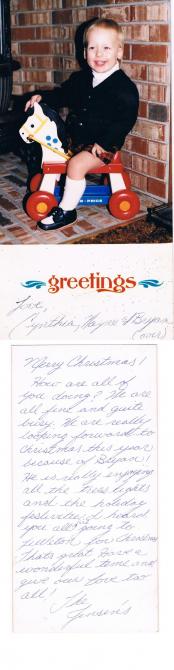 FISHER-PRICE
greetings
Love,
Cynthia, Wayne & Bryan
(over)
Merry Christmas!
How are all of
you doing? We are
all fine and quite
busy. We are really
looping forward to
Christmas this year
because of Bryan!
He is really enjoying
all the tree lights
and the holiday
festivities. I heard
you all going to
for Christmas
That's great have a
wonderful time and
give our love to
all!
The
Jensen's